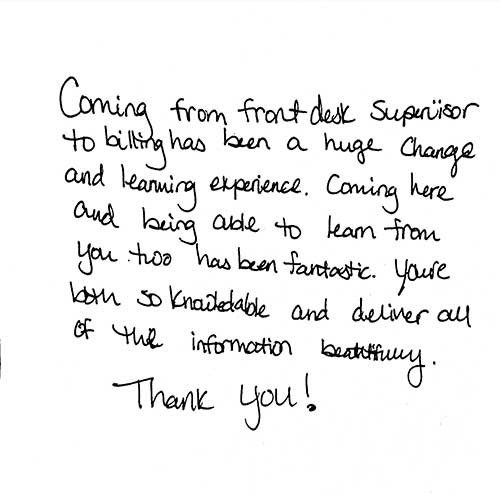 Coming from front desk Supervisor
to billing has been a huge Change
and learning experience. Coming here
and being able to learn from
you two has been fantastic. You're
both so knowledable and deliver all
of the information beautifully.
Thank you!